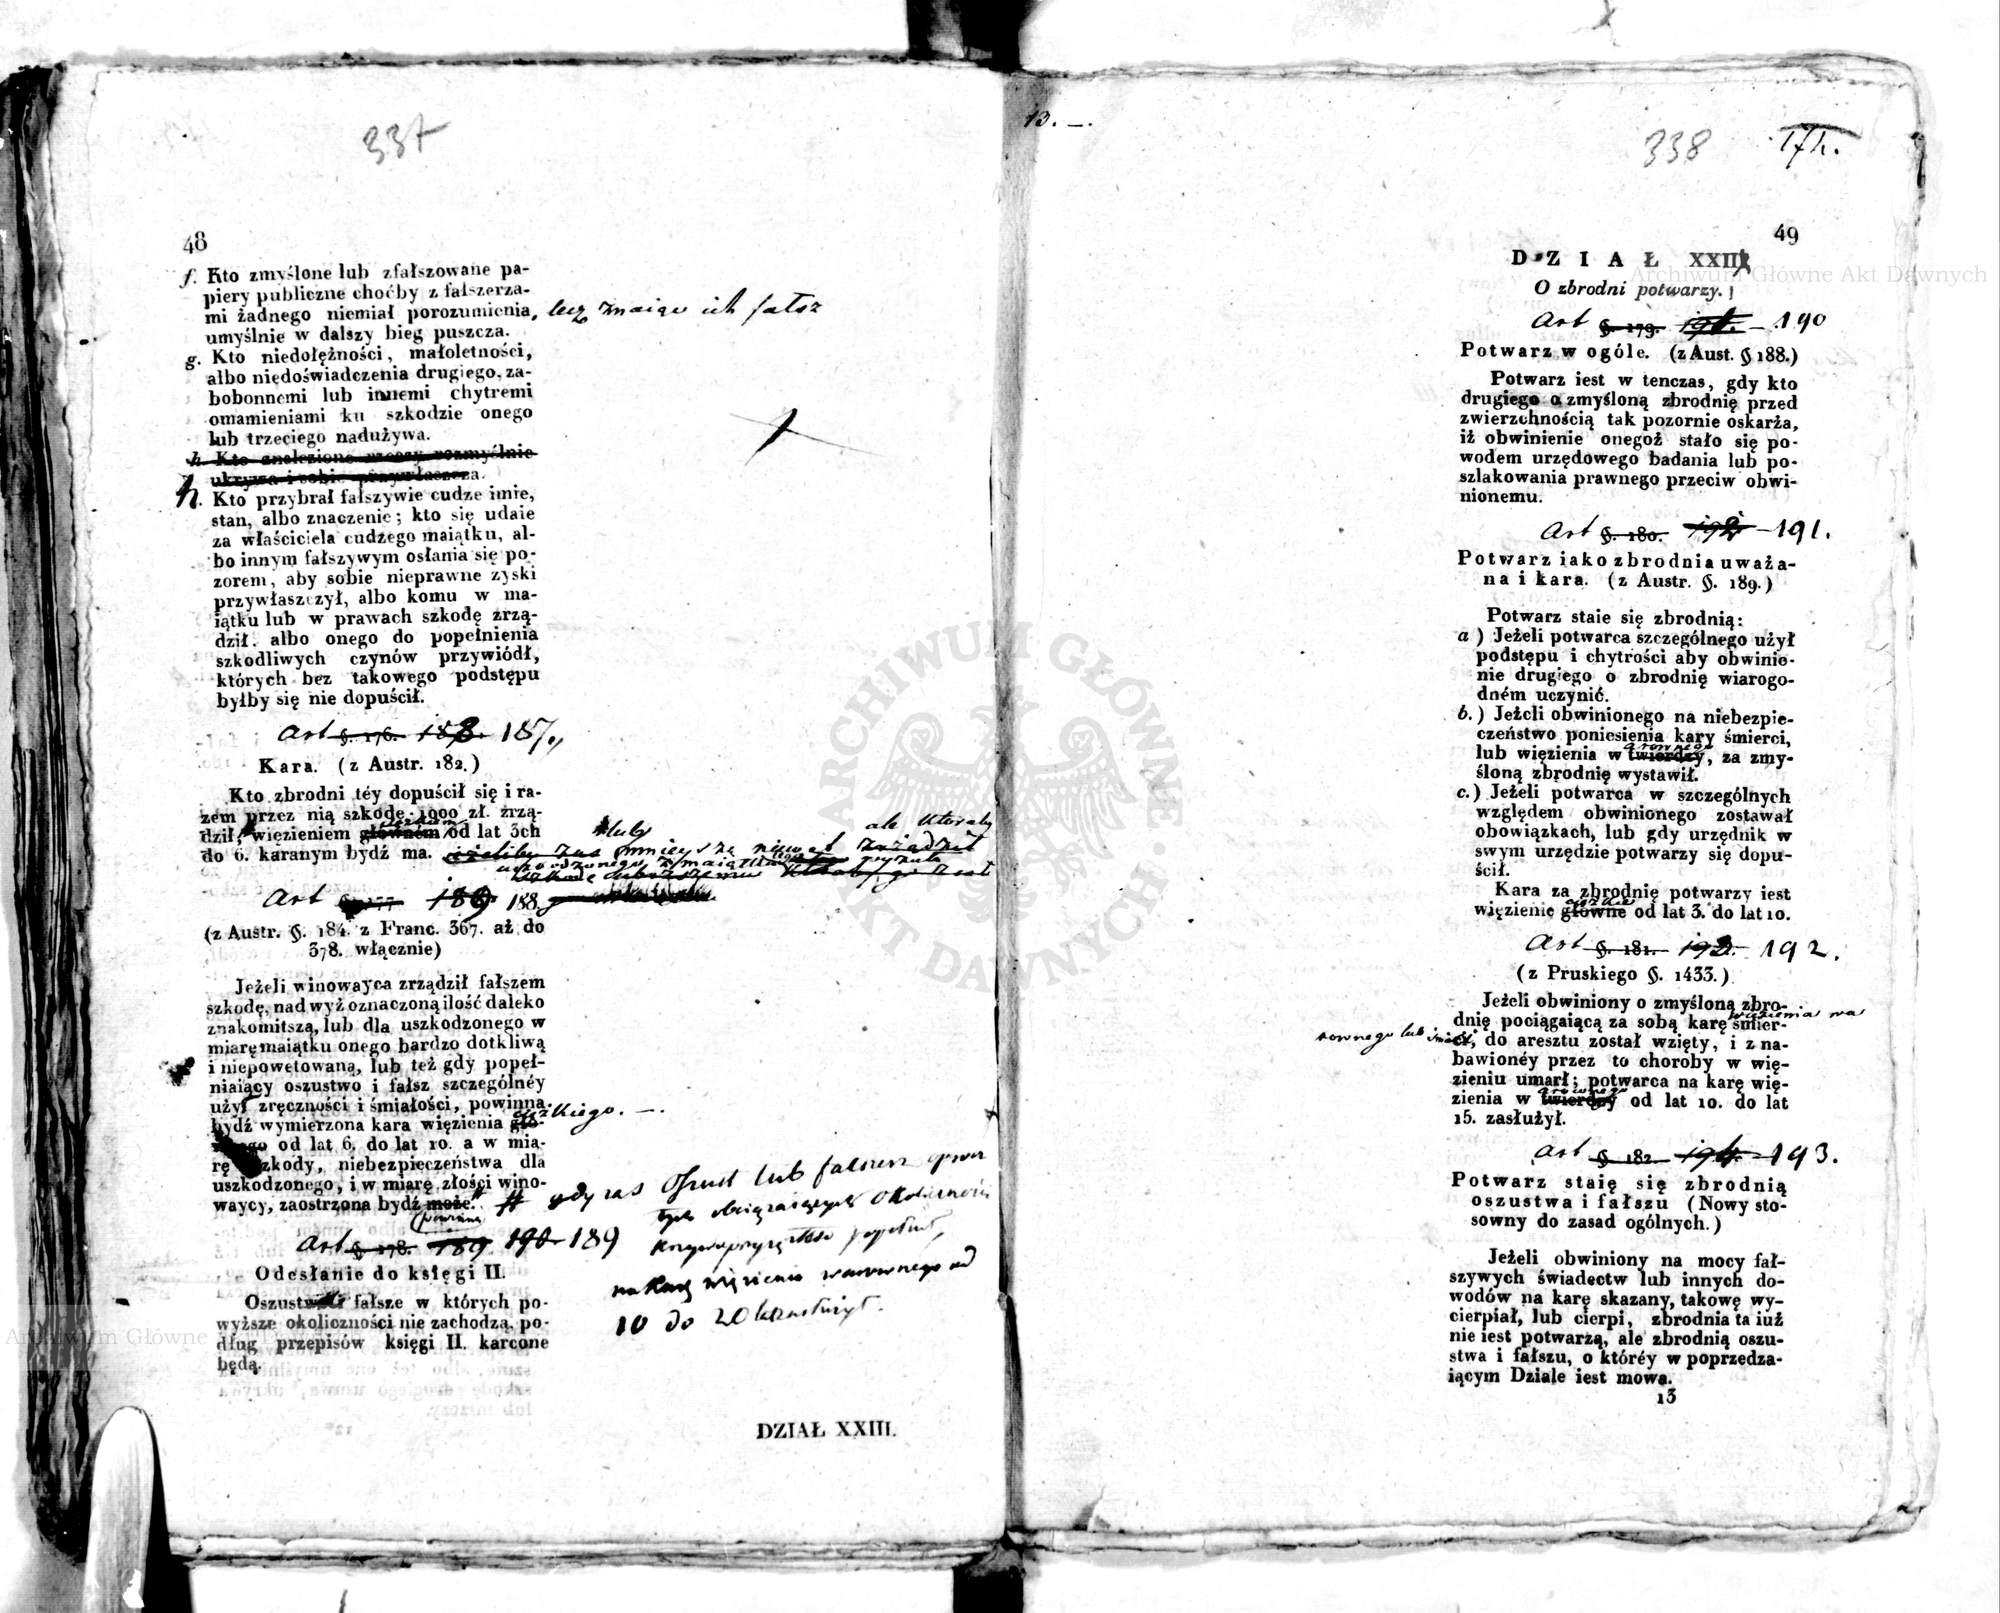 337
48
f. Kto zmyślone lub zfałszowane pa-
piery publiczne choćby z fałszerza-
mi żadnego niemiał porozumienia, lecz znaiąc ich fałsz
umyślnie w dalszy bieg puszcza.
g. Kto niedołężności, małoletności,
albo niedoświadczenia drugiego, za-
bobonnemi lub innemi chytremi
omamieniami ku szkodzie onego
lub trzeciego nadużywa.
h. Kto znalezione rzeczy rozmyślnie
ukrywa i sobie przywłaszcza.
h. Kto przybrał fałszywie cudze imie,
stan, albo znaczenie; kto się udaie
za właściciela cudzego maiątku, al-
bo innym fałszywym osłania się po-
zorem, aby sobie nieprawne zyski
przywłaszczył, albo komu w ma-
iątku lub w prawach szkodę zrzą-
dził, albo onego do popełnienia
szkodliwych czynów przywiódł,
których bez takowego podstępu
byłby się nie dopuścił.
Art §. 176. 188. 187.
Kara. (z Austr. 182.)
Kto zbrodni téy dopuścił się i ra-
zem przez nią szkodę 1000 zł. zrzą-
dził, więzieniem głównem od lat 3ch
do 6. karanym bydź ma.
lub ale któraby
Art §. 177 189 188.
(z Austr. §. 184. z Franc. 367. aż do
378. włącznie)
Jeżeli winowayca zrządził fałszem
szkodę, nad wyż oznaczoną ilość daleko
znakomitszą, lub dla uszkodzonego w
miarę maiątku onego bardzo dotkliwą
i niepowetowaną, lub też gdy popeł-
niaiący oszustwo i fałsz szczególnéy
użył zręczności i śmiałości, powinna
ciężkiego. —
bydź wymierzona kara więzienia głó-
wnego od lat 6. do lat 10. a w mia-
rę szkody, niebezpieczeństwa dla
uszkodzonego, i w miarę złości wino-
waycy, zaostrzona bydź może. #
powinna
# gdy zas Oszust lub fałszerz
okoliczności
na karę więzienia warownego od
10 do 20 lat zasłużył.
Art §. 178. 189 190 189
Odesłanie do księgi II.
Oszustwa i fałsze w których po-
wyższe okoliczności nie zachodzą, po-
dług przepisów księgi II. karcone
będą.
DZIAŁ XXIII.
13. —.
338
49
DZIAŁ XXIII
O zbrodni potwarzy.
Art §. 179. 191. 190
Potwarz w ogóle. (z Aust. § 188.)
Potwarz iest w tenczas, gdy kto
drugiego o zmyśloną zbrodnię przed
zwierzchnością tak pozornie oskarża,
iż obwinienie onegoż stało się po-
wodem urzędowego badania lub po-
szlakowania prawnego przeciw obwi-
nionemu.
Art §. 180. 192 191.
Potwarz iako zbrodnia uważa-
na i kara. (z Austr. §. 189.)
Potwarz staie się zbrodnią:
a) Jeżeli potwarca szczególnego użył
podstępu i chytrości aby obwinie-
nie drugiego o zbrodnię wiarogo-
dném uczynić.
b.) Jeżeli obwinionego na niebezpie-
czeństwo poniesienia kary śmierci,
warownego
lub więzienia w twierdzy, za zmy-
śloną zbrodnię wystawił.
c.) Jeżeli potwarca w szczególnych
względem obwinionego zostawał
obowiązkach, lub gdy urzędnik w
swym urzędzie potwarzy się dopu-
ścił.
Kara za zbrodnię potwarzy iest
ciężkie
więzienie główne od lat 3. do lat 10.
Art §. 181. 193. 192.
(z Pruskiego §. 1433.)
Jeżeli obwiniony o zmyśloną zbro-
więzienia wa
dnię pociągaiącą za sobą karę śmier-
rownego lub śmierci
ci, do aresztu został wzięty, i z na-
bawionéy przez to choroby w wię-
zieniu umarł; potwarca na karę wię-
warownego
zienia w twierdzy od lat 10. do lat
15. zasłużył.
Art § 182 194. 193.
Potwarz staię się zbrodnią
oszustwa i fałszu (Nowy sto-
sowny do zasad ogólnych.)
Jeżeli obwiniony na mocy fał-
szywych świadectw lub innych do-
wodów na karę skazany, takowę wy-
cierpiał, lub cierpi, zbrodnia ta iuż
nie iest potwarzą, ale zbrodnią oszu-
stwa i fałszu, o któréy w poprzedza-
iącym Dziale iest mowa.
13
Archiwum Główne Akt Dawnych
Archiwum Główne Akt Dawnych
ARCHIWUM GŁÓWNE AKT DAWNYCH